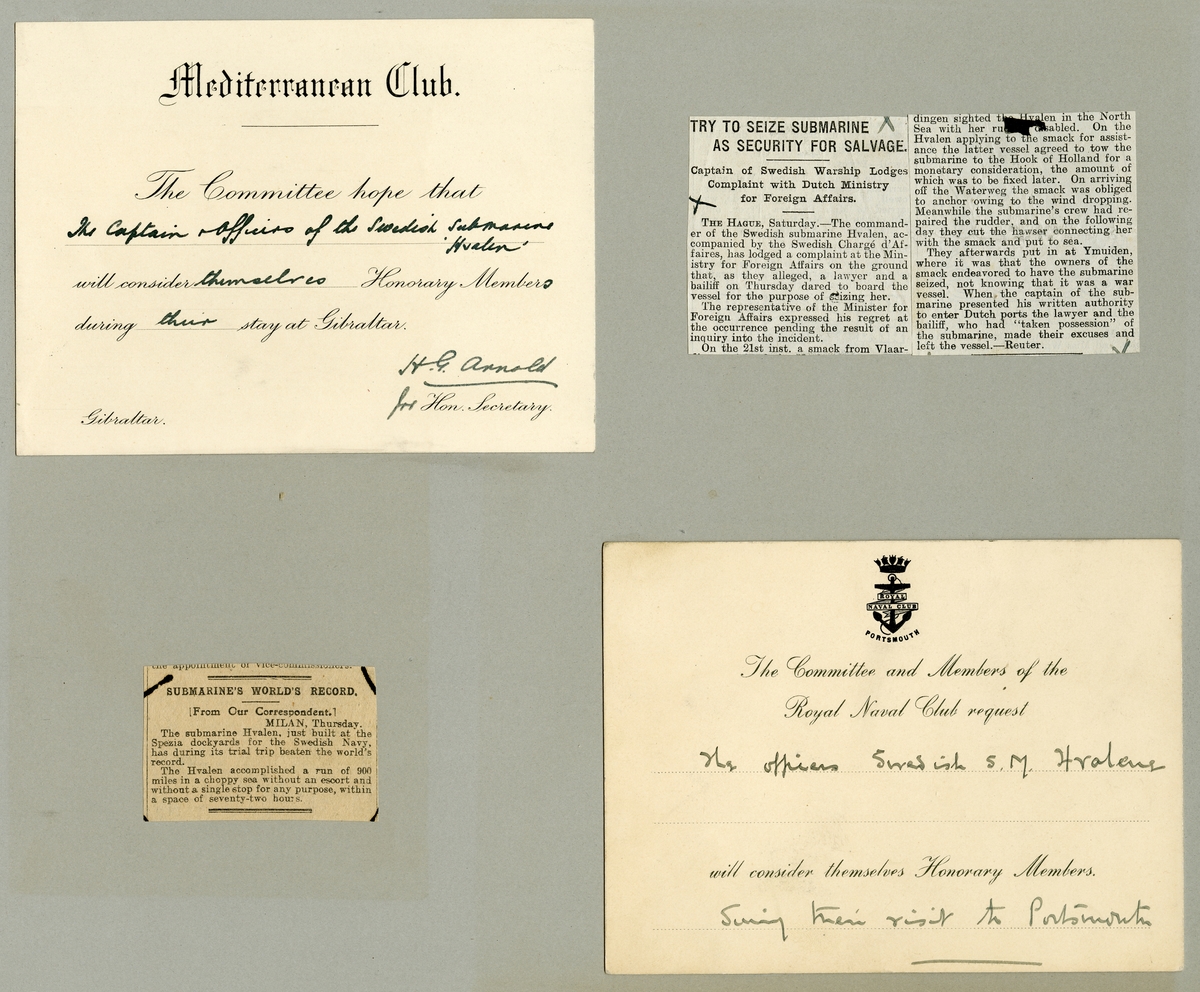 Mediterranean Club.
The Committee hope that
The Captain & Officers of the Swedish Submarine
'Hvalen'
will consider themselves Honorary Members
during their stay at Gibraltar.
H. G. Arnold
for Hon. Secretary.
Gibraltar.
TRY TO SEIZE SUBMARINE
AS SECURITY FOR SALVAGE.
Captain of Swedish Warship Lodges
Complaint with Dutch Ministry
for Foreign Affairs.
THE HAGUE, Saturday.—The command-
er of the Swedish submarine Hvalen, ac-
companied by the Swedish Chargé d'Af-
faires, has lodged a complaint at the Min-
istry for Foreign Affairs on the ground
that, as they alleged, a lawyer and a
bailiff on Thursday dared to board the
vessel for the purpose of seizing her.
The representative of the Minister for
Foreign Affairs expressed his regret at
the occurrence pending the result of an
inquiry into the incident.
On the 21st inst. a smack from Vlaar-
dingen sighted the Hvalen in the North
Sea with her rudder disabled. On the
Hvalen applying to the smack for assist-
ance the latter vessel agreed to tow the
submarine to the Hook of Holland for a
monetary consideration, the amount of
which was to be fixed later. On arriving
off the Waterweg the smack was obliged
to anchor owing to the wind dropping.
Meanwhile the submarine's crew had re-
paired the rudder, and on the following
day they cut the hawser connecting her
with the smack and put to sea.
They afterwards put in at Ymuiden,
where it was that the owners of the
smack endeavored to have the submarine
seized, not knowing that it was a war
vessel. When the captain of the sub-
marine presented his written authority
to enter Dutch ports the lawyer and the
bailiff, who had "taken possession" of
the submarine, made their excuses and
left the vessel.—Reuter.
the appointment of vice-commissioners.
SUBMARINE'S WORLD'S RECORD.
[From Our Correspondent.]
MILAN, Thursday.
The submarine Hvalen, just built at the
Spezia dockyards for the Swedish Navy,
has during its trial trip beaten the world's
record.
The Hvalen accomplished a run of 900
miles in a choppy sea without an escort and
without a single stop for any purpose, within
a space of seventy-two hours.
ROYAL
NAVAL CLUB
PORTSMOUTH
The Committee and Members of the
Royal Naval Club request
The officers Swedish S. M. Hvalene
will consider themselves Honorary Members.
During their visit to Portsmouth